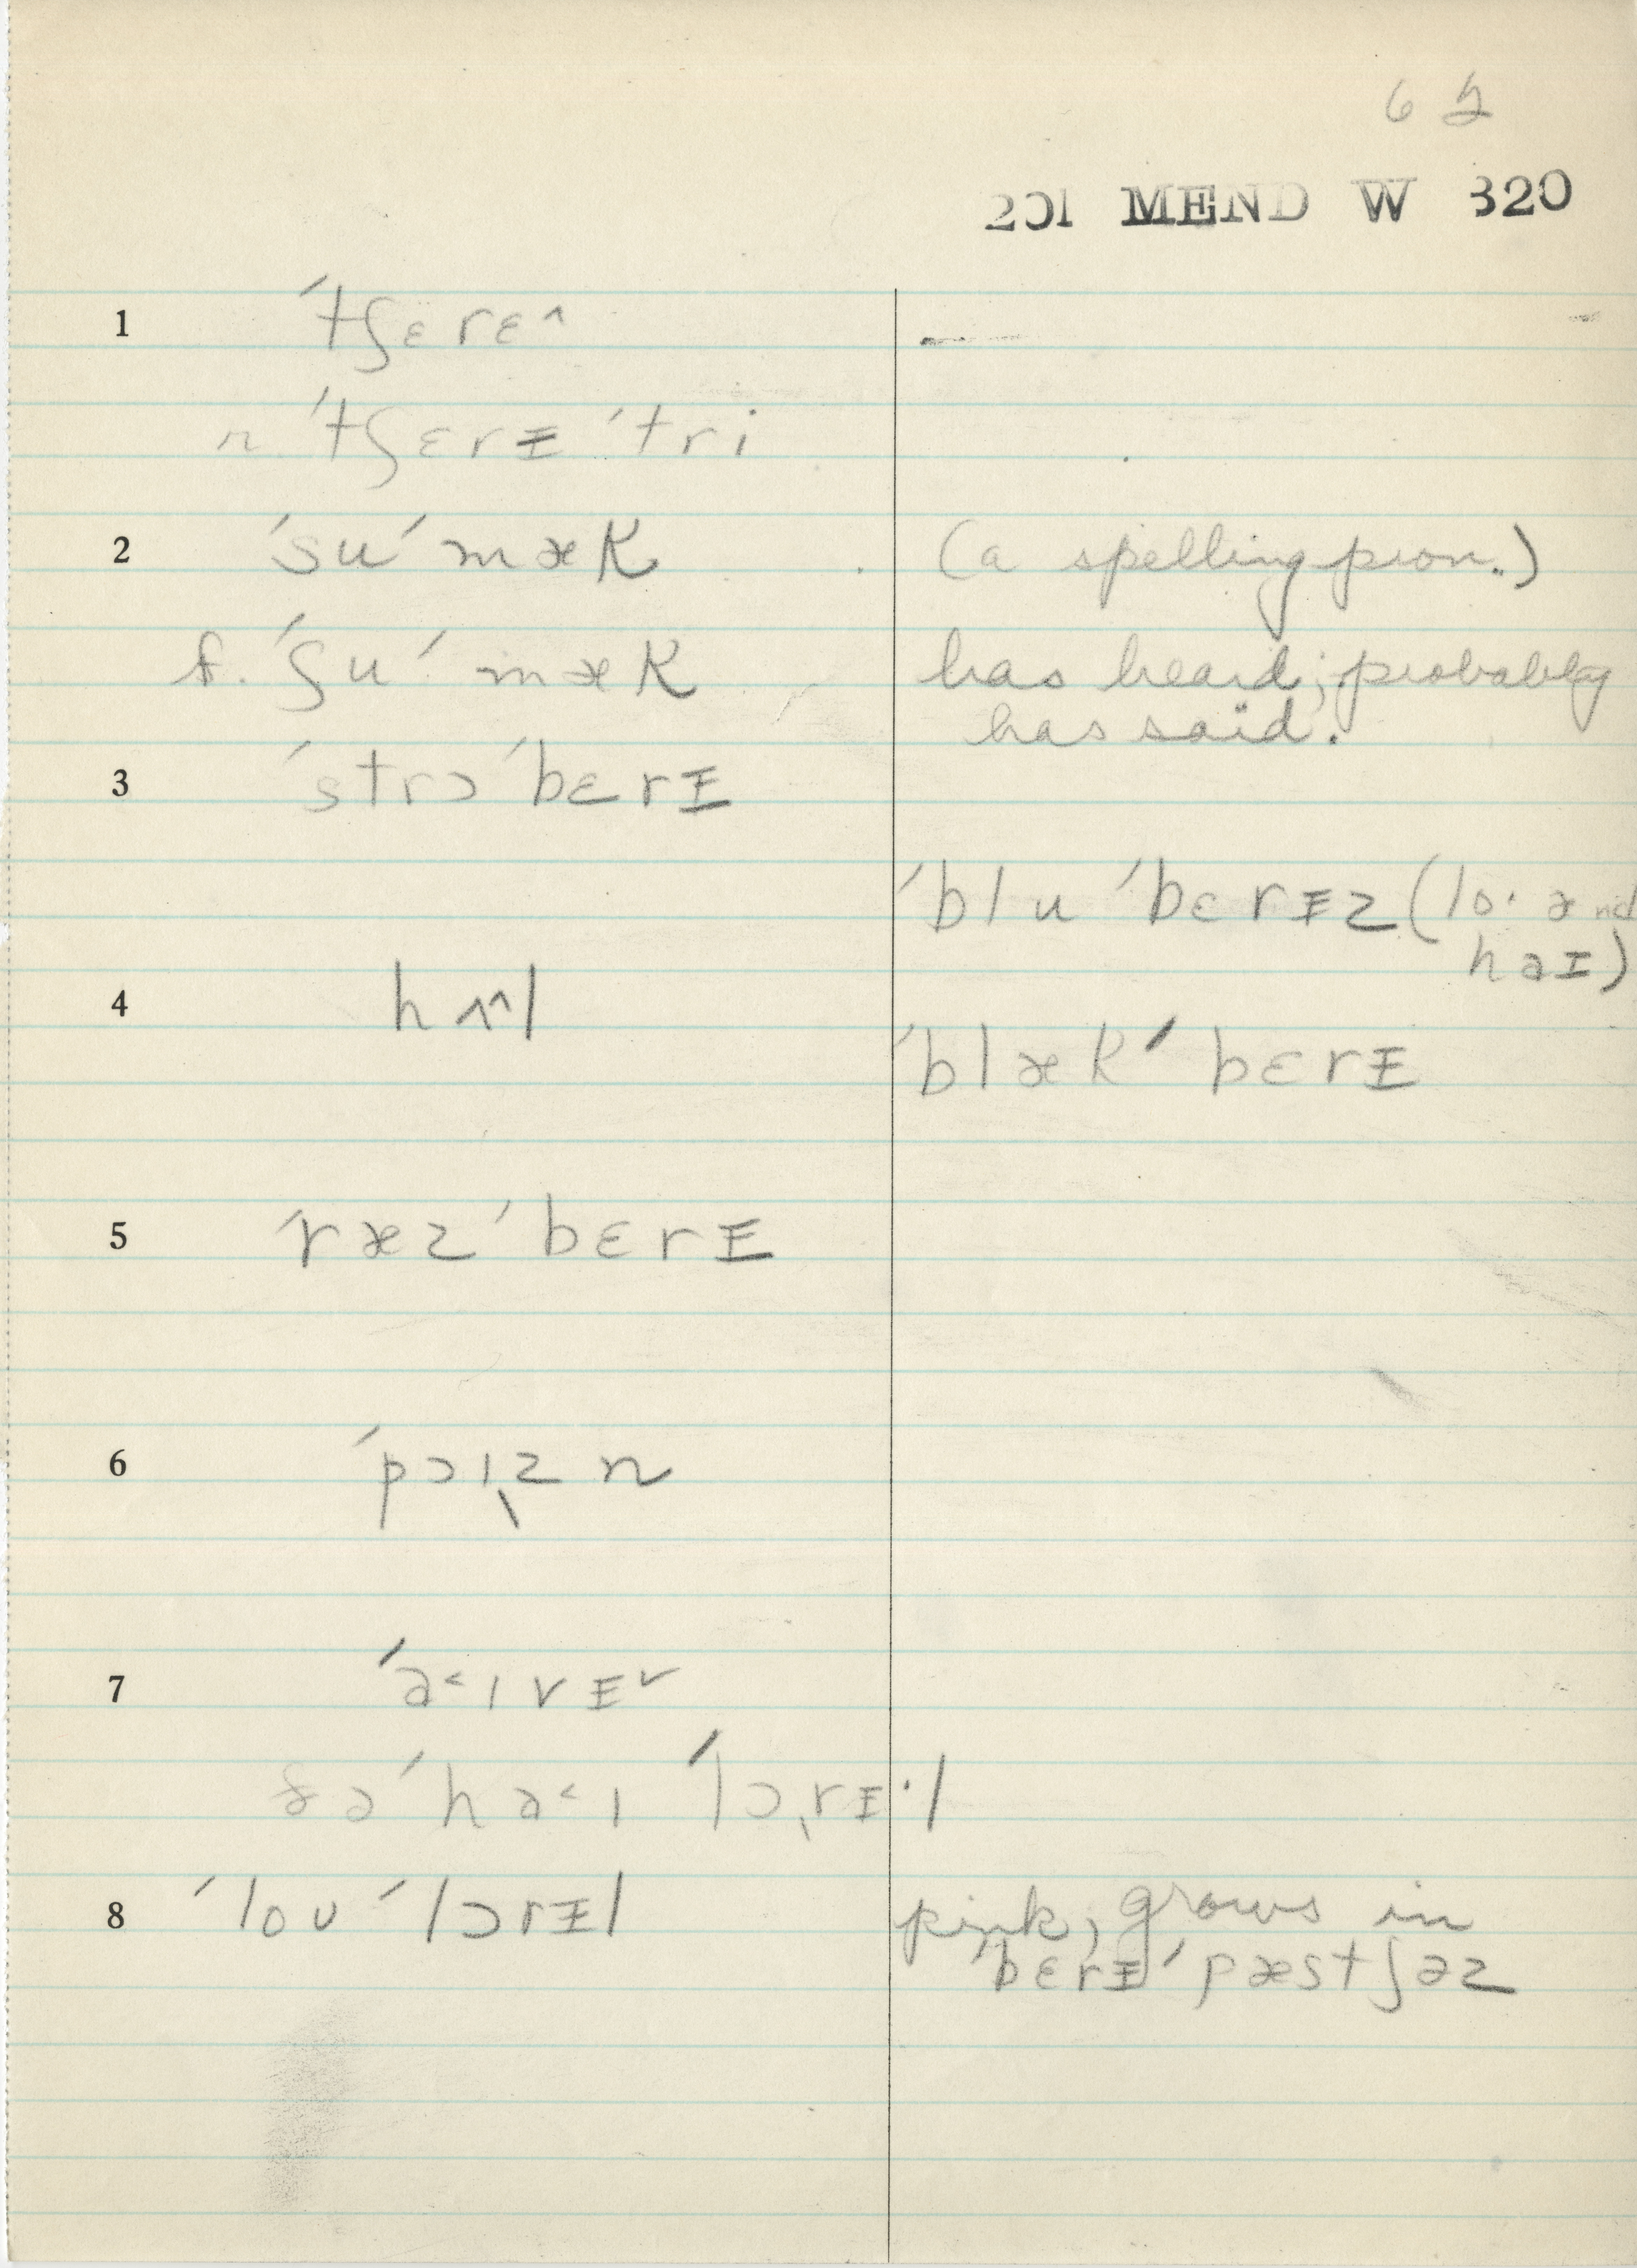 62
201 MEND W 320
1 ˈtʃɛrɛ^
n. ˈtʃɛrɪ ˈtri
2 ˈsuˈmæk (a spelling pron.)
f. ˈʃuˈmæk has heard; probably
has said.
3 ˈstrɔˈbɛrɪ
ˈbluˈbɛrɪz (lo· ənd
haɪ)
4 hʌ^l
ˈblækˈbɛrɪ
5 ˈræzˈbɛrɪ
6 ˈpɔɪzn
7 ˈa˂ɪvɪ˅
ðəˈha˂ɪ ˈlɔrɪ·l
8 ˈloʊˈlɔrɪl pink, grows in
bɛrɪˈpæstʃəz